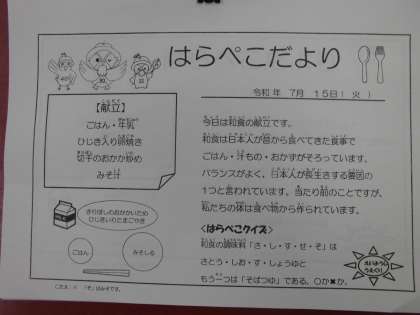 はらぺこだより
令和 年 7月 15日（火）
【献立】
ごはん・牛乳
ひじき入り卵焼き
切干のおかか炒め
みそ汁
きりぼしのおかかいため
ひじきいりたまごやき
ごはん
みそしる
今日は和食の献立です。
和食は日本人が昔から食べてきた食事で
ごはん・汁もの・おかずがそろっています。
バランスがよく、日本人が長生きする要因の
1つと言われています。当たり前のことですが、
私たちの体は食べ物から作られています。
<はらぺこクイズ>
和食の調味料「さ・し・す・せ・そ」は
さとう・しお・す・しょうゆと
もう一つは「そばつゆ」である。○か✖か。
こたえ ✖ 「そ」はみそです。